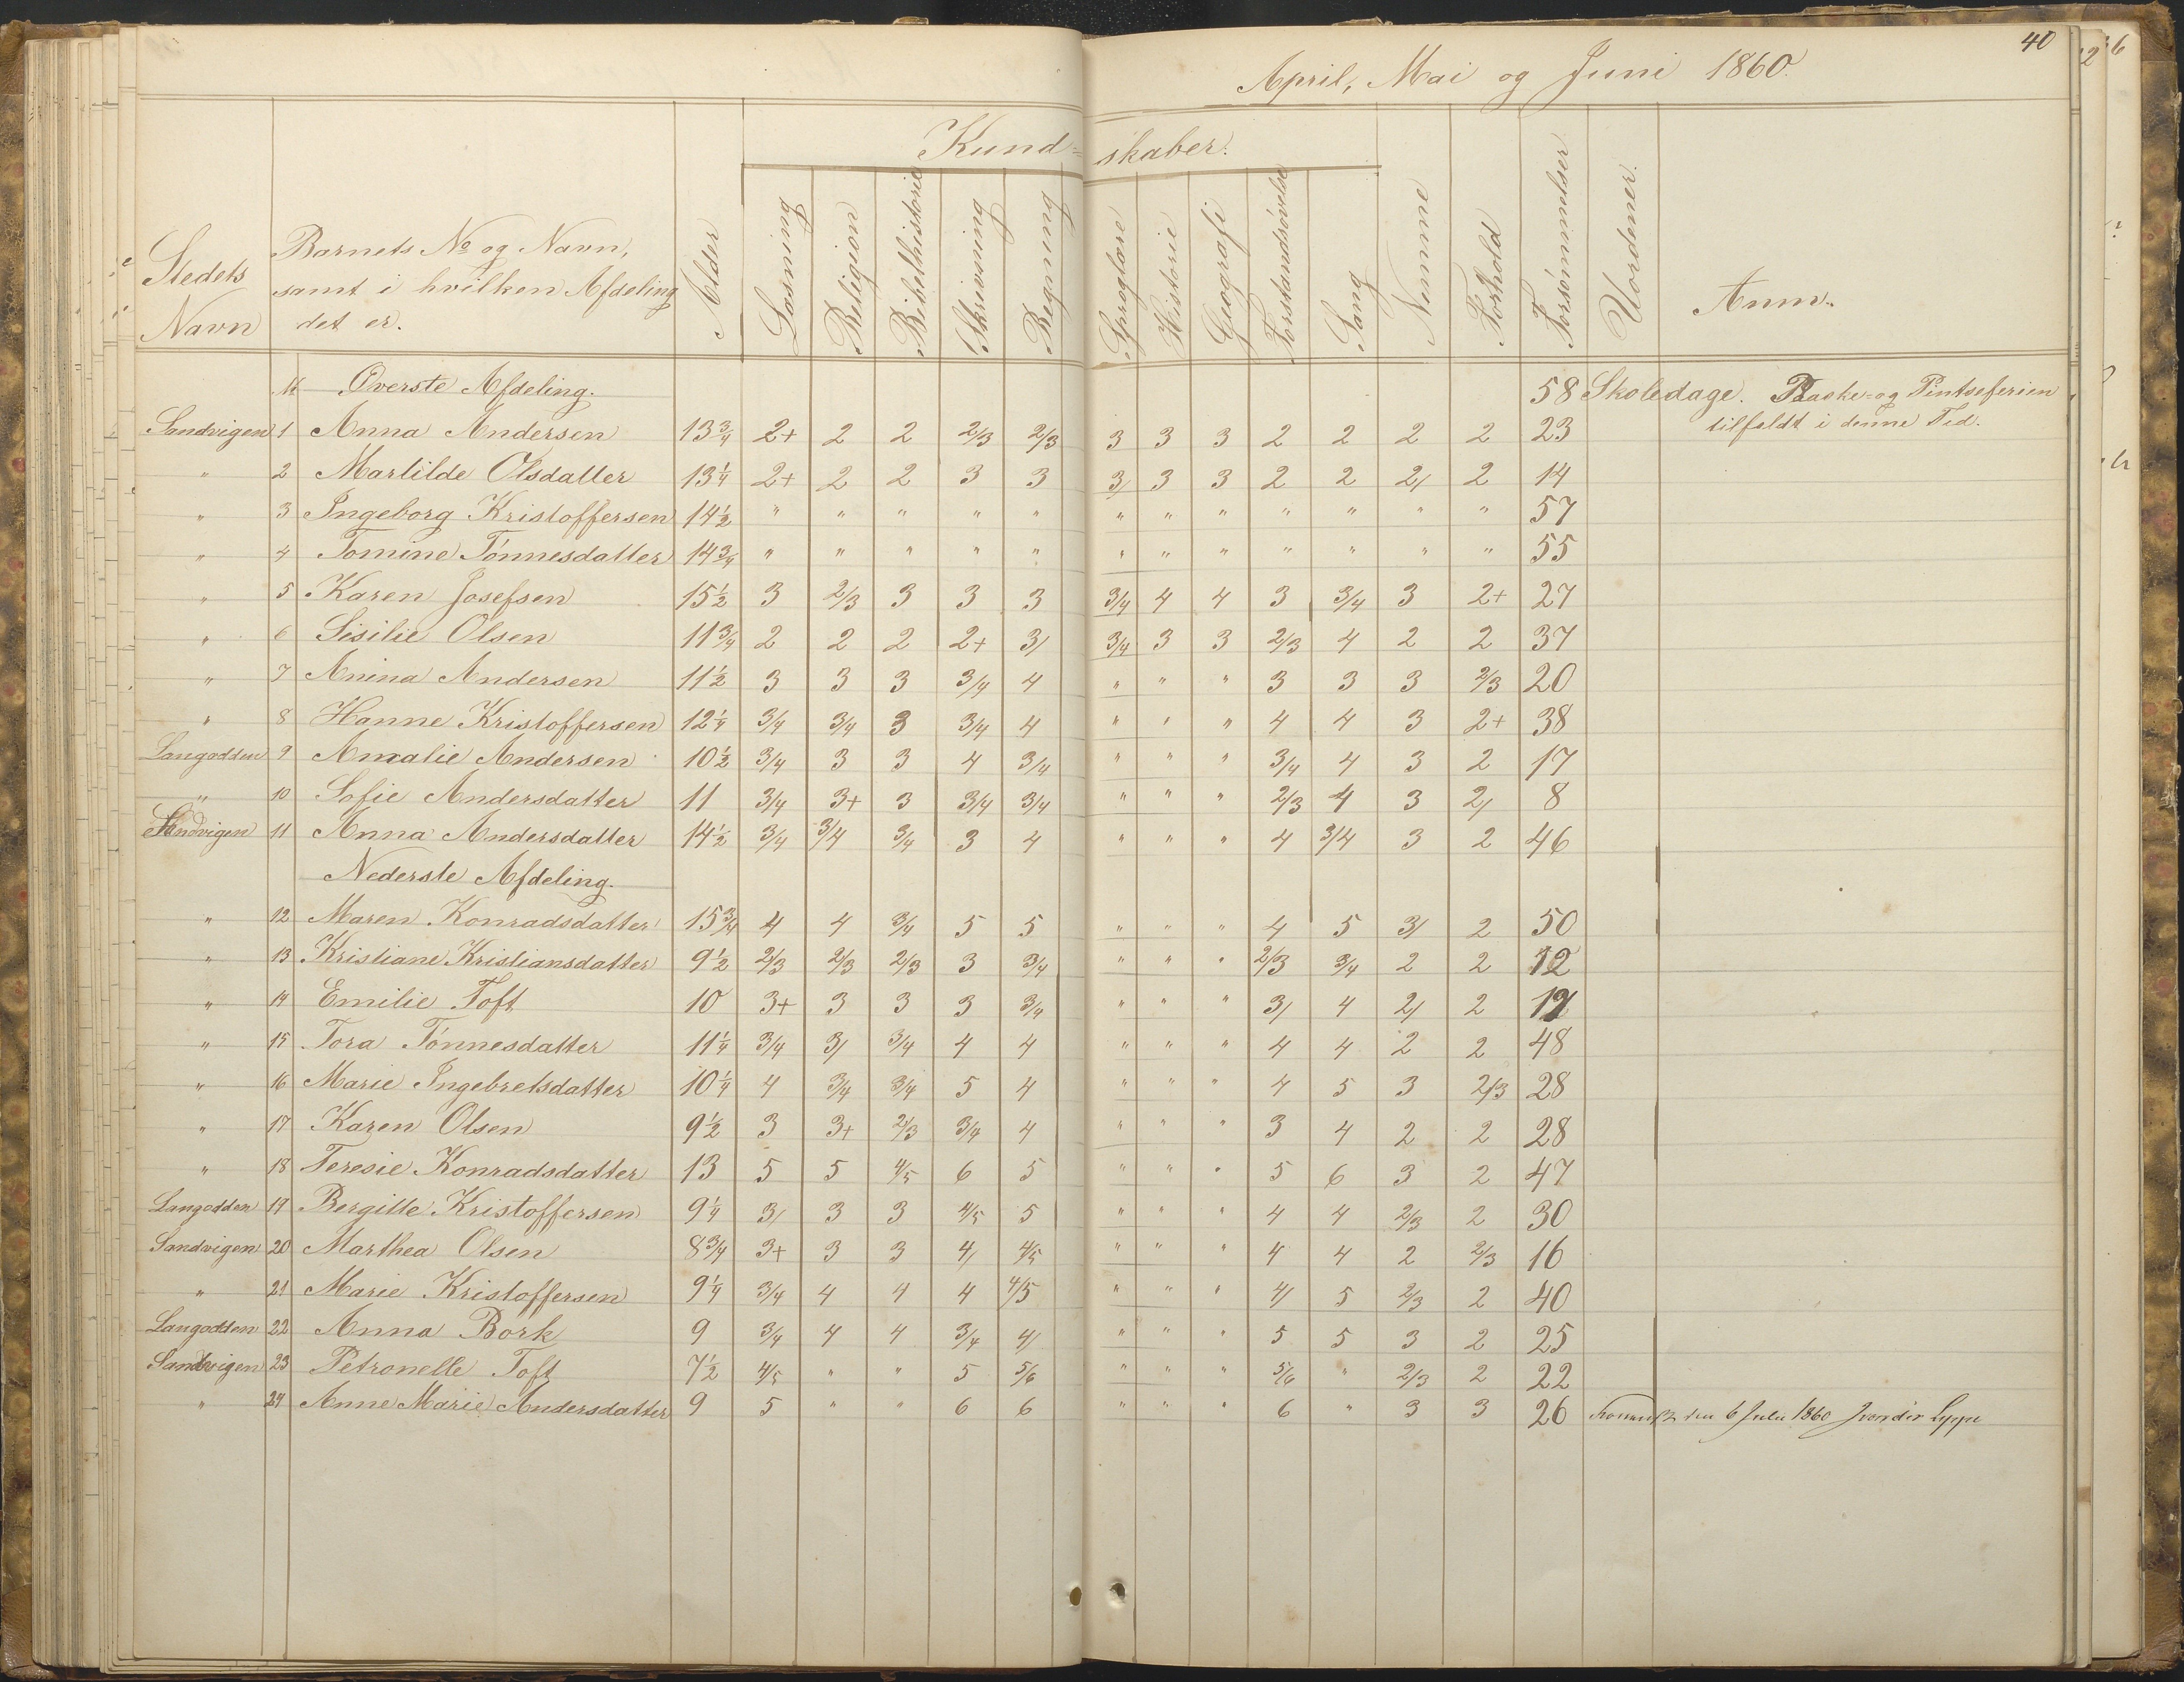 40
April, Mai og Juni 1860.
Kund=skaber.
Stedets Navn | Barnets No og Navn, samt i hvilken Afdeling det er. | Alder | Læsning | Religion | Bibelhistorie | Skrivning | Regning | Sproglære | Historie | Geografi | Forstandsøvelse | Sang | Nemme | Forhold | Forsømmelser | Uordener. | Anm.
Øverste Afdeling. 58 Skoledage. Paaske- og Pintseferien
tilfaldt i denne Tid.
Sandvigen 1 Anna Andersen 13¾ 2+ 2 2 2/3 2/3 3 3 3 2 2 2 2 23
" 2 Martilde Olsdatter 13¼ 2+ 2 2 3 3 3/ 3 3 2 2 2/ 2 14
" 3 Ingeborg Kristoffersen 14½ " " " " " " " " " " " " 57
" 4 Tomine Tönnesdatter 14¾ " " " " " " " " " " " " 55
" 5 Karen Josefsen 15½ 3 2/3 3 3 3 3/4 4 4 3 3/4 3 2+ 27
" 6 Sisilie Olsen 11¾ 2 2 2 2+ 3/ 3/4 3 3 2/3 4 2 2 37
" 7 Anina Andersen 11½ 3 3 3 3/4 4 " " " 3 3 3 2/3 20
" 8 Hanne Kristoffersen 12¼ 3/4 3/4 3 3/4 4 " " " 4 4 3 2+ 38
Langodden 9 Amalie Andersen 10½ 3/4 3 3 4 3/4 " " " 3/4 4 3 2 17
" 10 Sofie Andersdatter 11 3/4 3+ 3 3/4 3/4 " " " 2/3 4 3 2/ 8
Sandvigen 11 Anna Andersdatter 14½ 3/4 3/4 3/4 3 4 " " " 4 3/4 3 2 46
Nederste Afdeling.
" 12 Maren Konradsdatter 15¾ 4 4 3/4 5 5 " " " 4 5 3/ 2 50
" 13 Kristiane Kristiansdatter 9½ 2/3 2/3 2/3 3 3/4 " " " 2/3 3/4 2 2 12
" 14 Emilie Toft 10 3+ 3 3 3 3/4 " " " 3/ 4 2/ 2
" 15 Tora Tönnesdatter 11¼ 3/4 3/ 3/4 4 4 " " " 4 4 2 2 48
" 16 Marie Ingebretsdatter 10¼ 4 3/4 3/4 5 4 " " " 4 5 3 2/3 28
" 17 Karen Olsen 9½ 3 3+ 2/3 3/4 4 " " " 3 4 2 2 28
" 18 Teresie Konradsdatter 13 5 5 4/5 6 5 " " " 5 6 3 2 47
Langodden 19 Bergitte Kristoffersen 9¼ 3/ 3 3 4/5 5 " " " 4 4 2/3 2 30
Sandvigen 20 Marthea Olsen 8¾ 3+ 3 3 4/ 4/5 " " " 4 4 2 2/3 16
" 21 Marie Kristoffersen 9¼ 3/4 4 4 4 4/5 " " " 4/ 5 2/3 2 40
Langodden 22 Anna Bork 9 3/4 4 4 3/4 4/ " " " 5 5 3 2 25
Sandvigen 23 Petronelle Toft 7½ 4/5 " " 5 5/6 " " " 5/6 " 2/3 2 22
" 24 Anne Marie Andersdatter 9 5 " " 6 6 " " " 6 " 3 3 26 den 6 Julii 1860